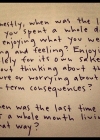 nestly, when was the l
you spent a whole d
enjoying what you we
ng and feeling? Enjoy
lely for its own sake
out thinking about th
ure or worrying about
-term consequences?
hen was the last time
a whole month livin
hat way?